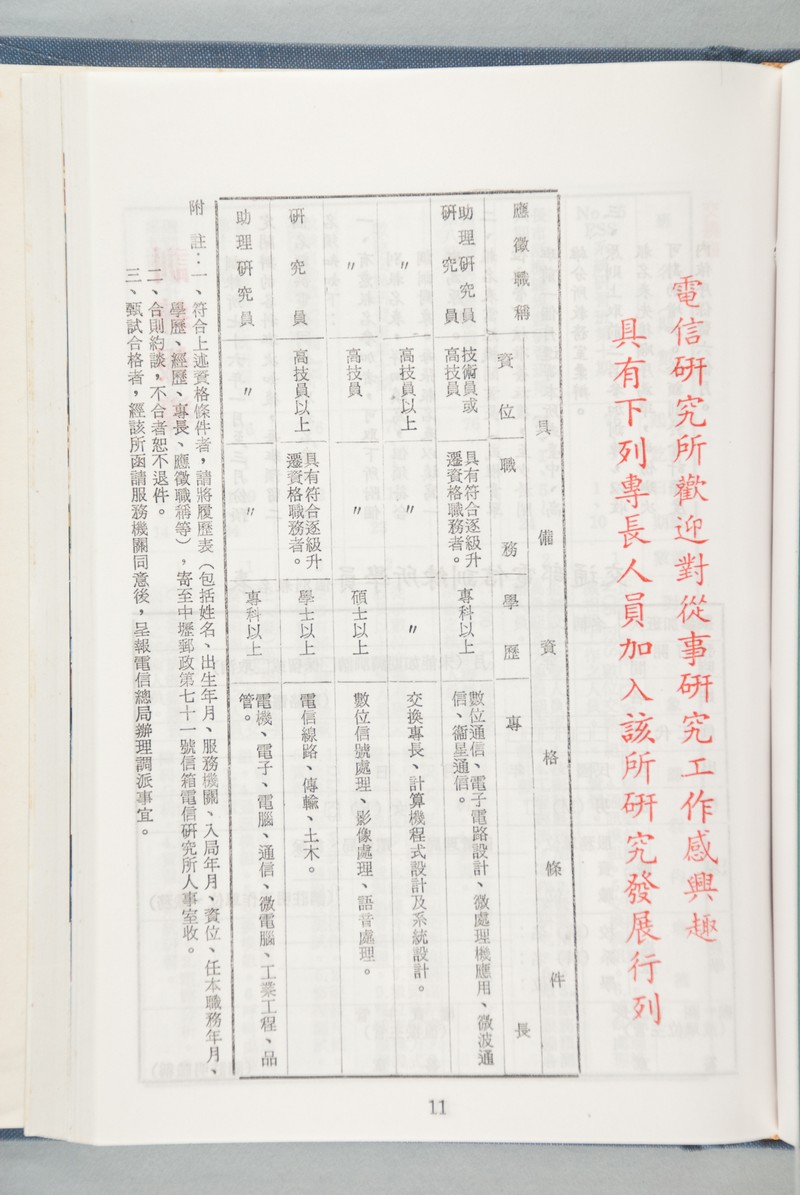 電信研究所歡迎對從事研究工作感興趣
具有下列專長人員加入該所研究發展行列
具備資格條件
應徵職稱
資位
職務
學歷
專長
助理研究員
研究員
技術員或
高技員
具有符合逐級升
遷資格職務者。
專科以上
數位通信、電子電路設計、微處理機應用、微波通
信、衞星通信。
〃
高技員以上
〃
〃
交換專長、計算機程式設計及系統設計。
〃
高技員
〃
碩士以上
數位信號處理、影像處理、語音處理。
研究員
高技員以上
具有符合逐級升
遷資格職務者。
學士以上
電信線路、傳輸、土木。
助理研究員
〃
〃
專科以上
電機、電子、電腦、通信、微電腦、工業工程、品
管。
附註：一、符合上述資格條件者，請將履歷表（包括姓名、出生年月、服務機關、入局年月、資位、任本職務年月、
學歷、經歷、專長、應徵職稱等），寄至中壢郵政第七十一號信箱電信研究所人事室收。
二、合則約談，不合者恕不退件。
三、甄試合格者，經該所函請服務機關同意後，呈報電信總局辦理調派事宜。
11